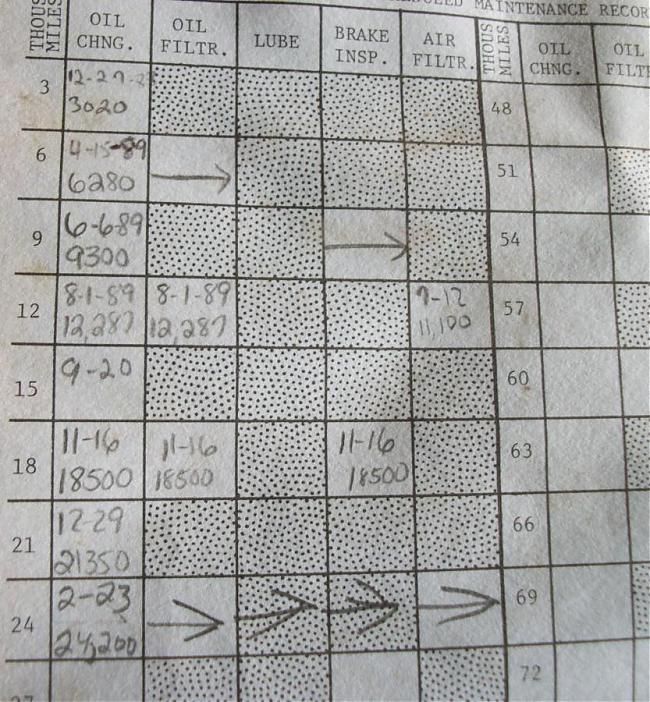 MAINTENANCE RECOR
THOUS MILES OIL CHNG. OIL FILTR. LUBE BRAKE INSP. AIR FILTR. THOUS MILES OIL CHNG. OIL FILTR
3 12-27- 48
3020
6 4-15-89 51
6280 →
9 6-6-89 → 54
9300
12 8-1-89 8-1-89 57
12,287 12,287 11,100
15 9-20 60
18 11-16 11-16 11-16 63
18500 18500 18500
21 12-29 66
21350
24 2-23 → → → → 69
24,200
72